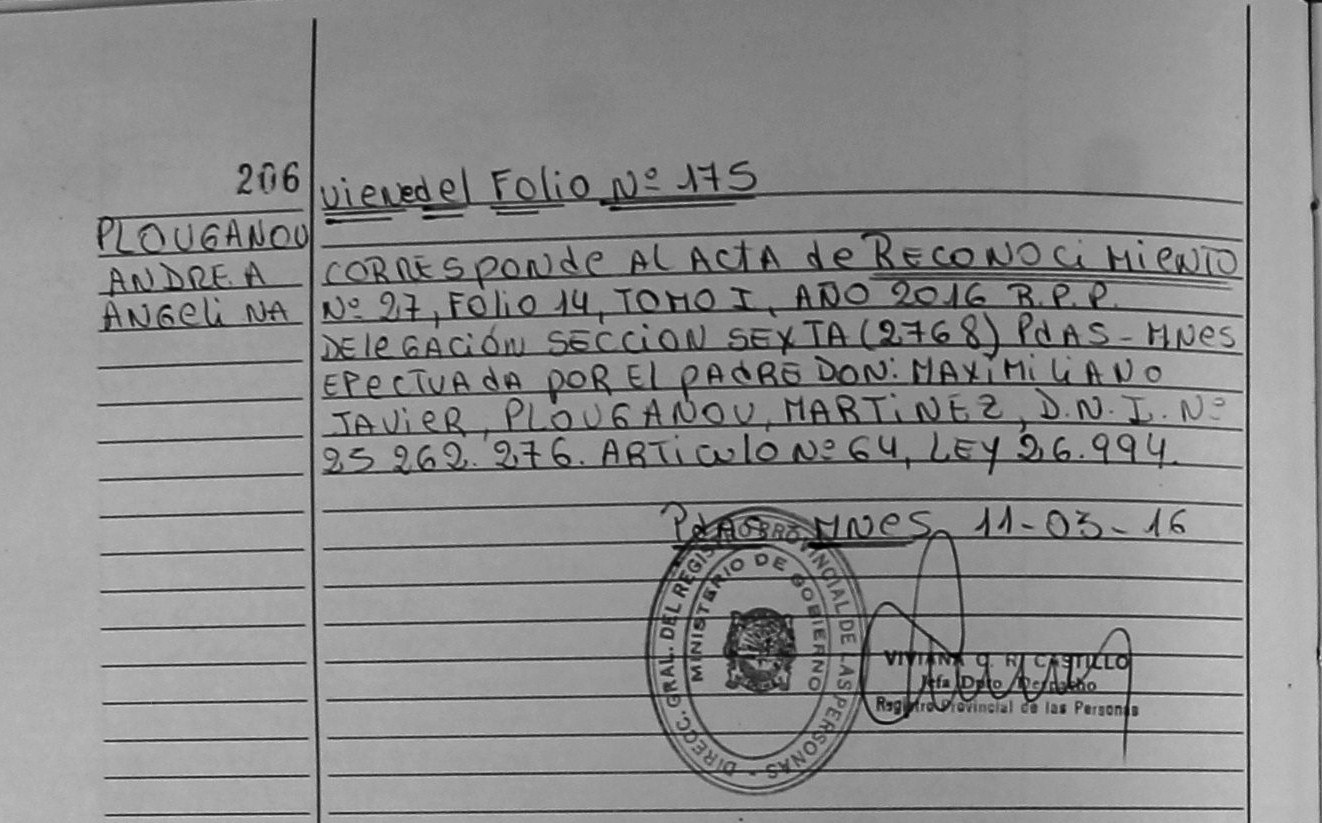 206
PLOUGANOU
ANDREA
ANGELINA
Viene del Folio Nº 175
CORRESponde AL ActA de RECONOCiMiento
Nº 27, Folio 14, TOMO I, AÑO 2016 R.P.P.
DELEGACIÓN SECCION SEXTA (2768) PdAS-MNes
EFECTUAdA POR El pAdRE DON: MAXiMiLiANO
JAVIER, PLOUGANOU, MARTINEZ, D.N.I. Nº
25 262.276. ARTiculo Nº 64, LEY 26.994.
PdAS MNES, 11-03-16
DIRECC. GRAL. DEL REGISTRO PROVINCIAL DE LAS PERSONAS
MINISTERIO DE GOBIERNO
VIVIANA R. CASTILLO
Jefa Dpto
Registro Provincial de las Personas